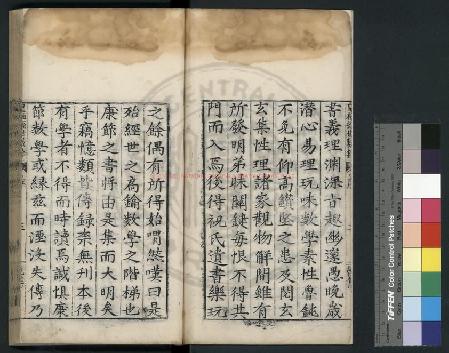 書義理淵深旨趣幽遠愚晚歲
潛心易理玩味數學素性魯鈍
不免有仰高鑽堅之患及閱玄
玄集性理諸家觀物解閒雖有
所發明弟昧關鍵每恨不得其
門而入焉後得祝氏遺書樂玩
之餘偶有所得始喟然嘆曰是
殆經世之為鑰數學之階梯也
康節之書將由是集而大明矣
乎竊憶類皆傳錄槩無刊本後
有學者不得而時讀焉誠惧康
節數學或緣茲而湮汶失傳乃
CENTRAL
TIFFEN Color Control Patches